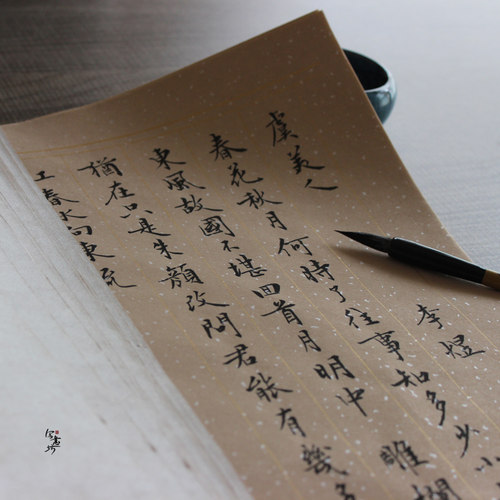 虞美人 李煜
春花秋月何時了往事知多少小
東風故國不堪回首月明中 雕欄
猶在只是朱顏改問君能有幾多
春水向東流